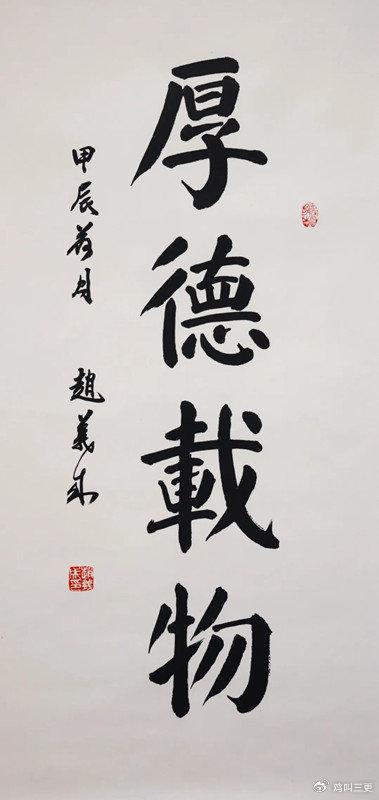 厚德載物
甲辰 月 趙義
鸡叫三更